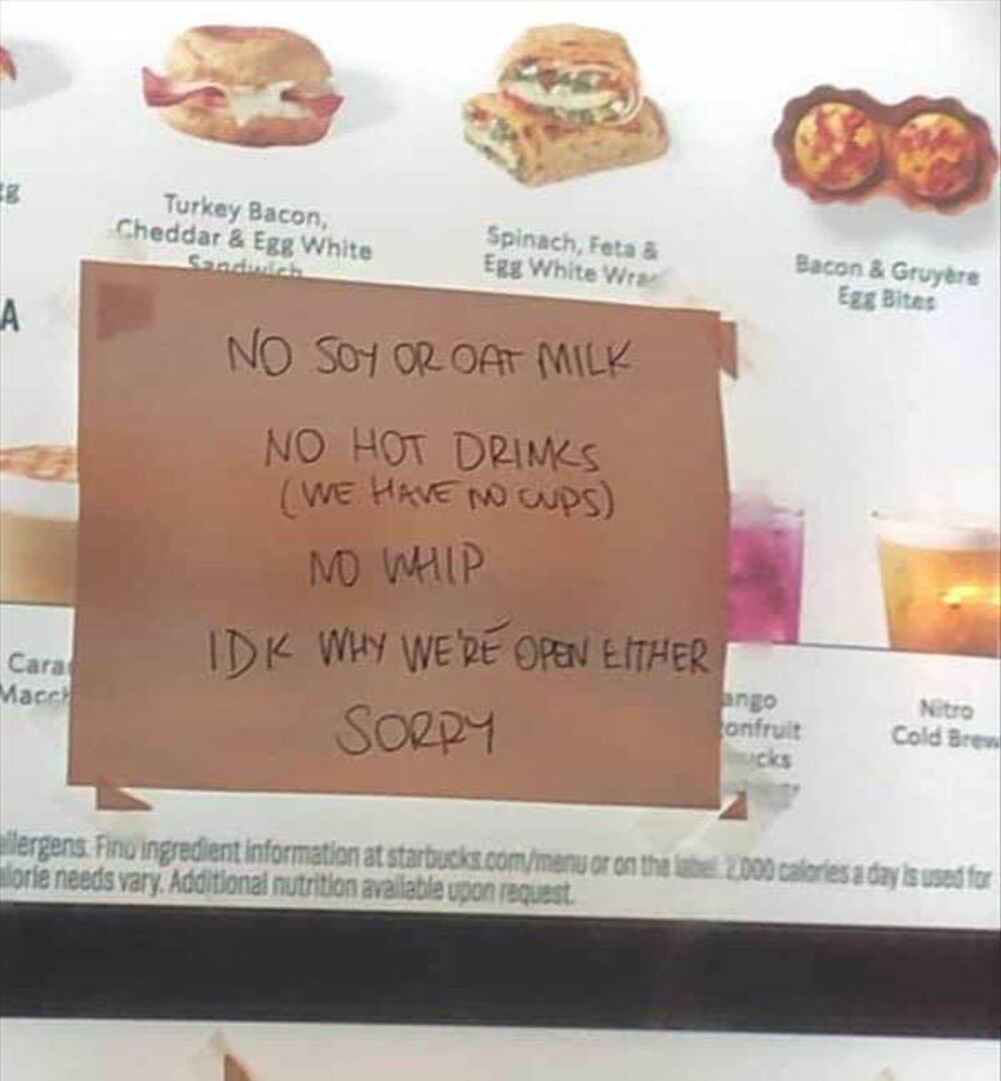 Turkey Bacon,
Cheddar & Egg White
Sandwich
Spinach, Feta &
Egg White Wra
Bacon & Gruyère
Egg Bites
A
NO SOY OR OAT MILK
NO HOT DRINKS
(WE HAVE NO CUPS)
NO WHIP
IDK WHY WE'RE OPEN EITHER
SORRY
Cara
Macch
ango
onfruit
Nitro
Cold Brew
allergens. Find ingredient information at starbucks.com/menu or on the label. 2,000 calories a day is used for
alorie needs vary. Additional nutrition available upon request.